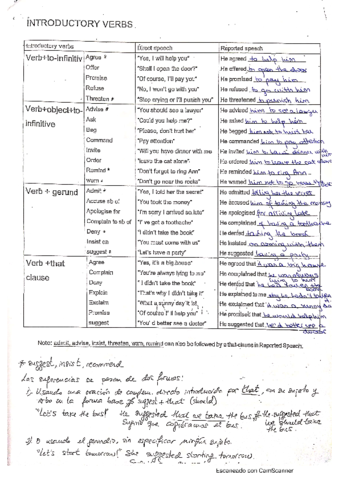 INTRODUCTORY VERBS
Introductory verbs Direct speech Reported speech
Verb+to-infinitiv Agree * "Yes, I will help you" He agreed to help him
Offer "Shall I open the door?" He offered to open the door
Promise "Of course, I'll pay you" He promised to pay him
Refuse "No, I won't go with you" He refused to go with him
Threaten * "Stop crying or I'll punish you" He threatened to punish him
Verb+object+to-infinitive Advise * "You should see a lawyer" He advised him to see a lawyer
Ask "Could you help me?" He asked him to help him
Beg "Please, don't hurt her" He begged him not to hurt her
Command "Pay attention" He commanded him to pay attention
Invite "Will you have dinner with me" He invited him to have dinner with him
Order "Leave the cat alone" He ordered him to leave the cat alone
Remind * "Don't forget to ring Ann" He reminded him to ring Ann
Warn * "Don't go near the rocks" He warned him not to go near the
Verb + gerund Admit * "Yes, I told her the secret" He admitted telling her the secret
Accuse sb of "You took the money" He accused him of taking the money
Apologise for "I'm sorry I arrived so late" He apologised for
Complain to sb of "I've got a toothache" He complained of having a toothache
Deny * "I didn't take the book" He denied taking the book
Insist on "You must come with us" He insisted on coming with them
suggest * "Let's have a party" He suggested having a party
Verb +that clause Agree "Yes, it's a big house" He agreed that it was a big house
Complain "You're always lying to me" He complained that he was always lying to him
Deny "I didn't take the book" He denied that he had
Explain "That's why I didn't take it" He explained to me why he hadn't taken
Exclaim "What a sunny day it is!" He exclaimed that it was a sunny day
Promise "Of course I'll help you" He promised that he would help him
suggest "You'd better see a doctor" He suggested that
Note: admit, advise, insist, threaten, warn, remind can also be followed by a that-clause in Reported Speech.
* suggest, insist, recommend
Las sugerencias se pasan de dos formas:
that
"Let's take the bus!" He suggested that we take the bus / He suggested that we should take the bus.
O usando el gerundio, sin especificar ningún sujeto.
"Let's start tomorrow!" She suggested starting tomorrow.
Escaneado con CamScanner